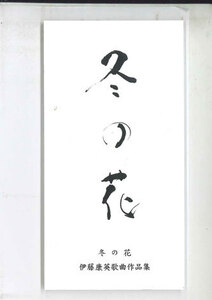 冬の花
冬の花
伊藤康英歌曲作品集